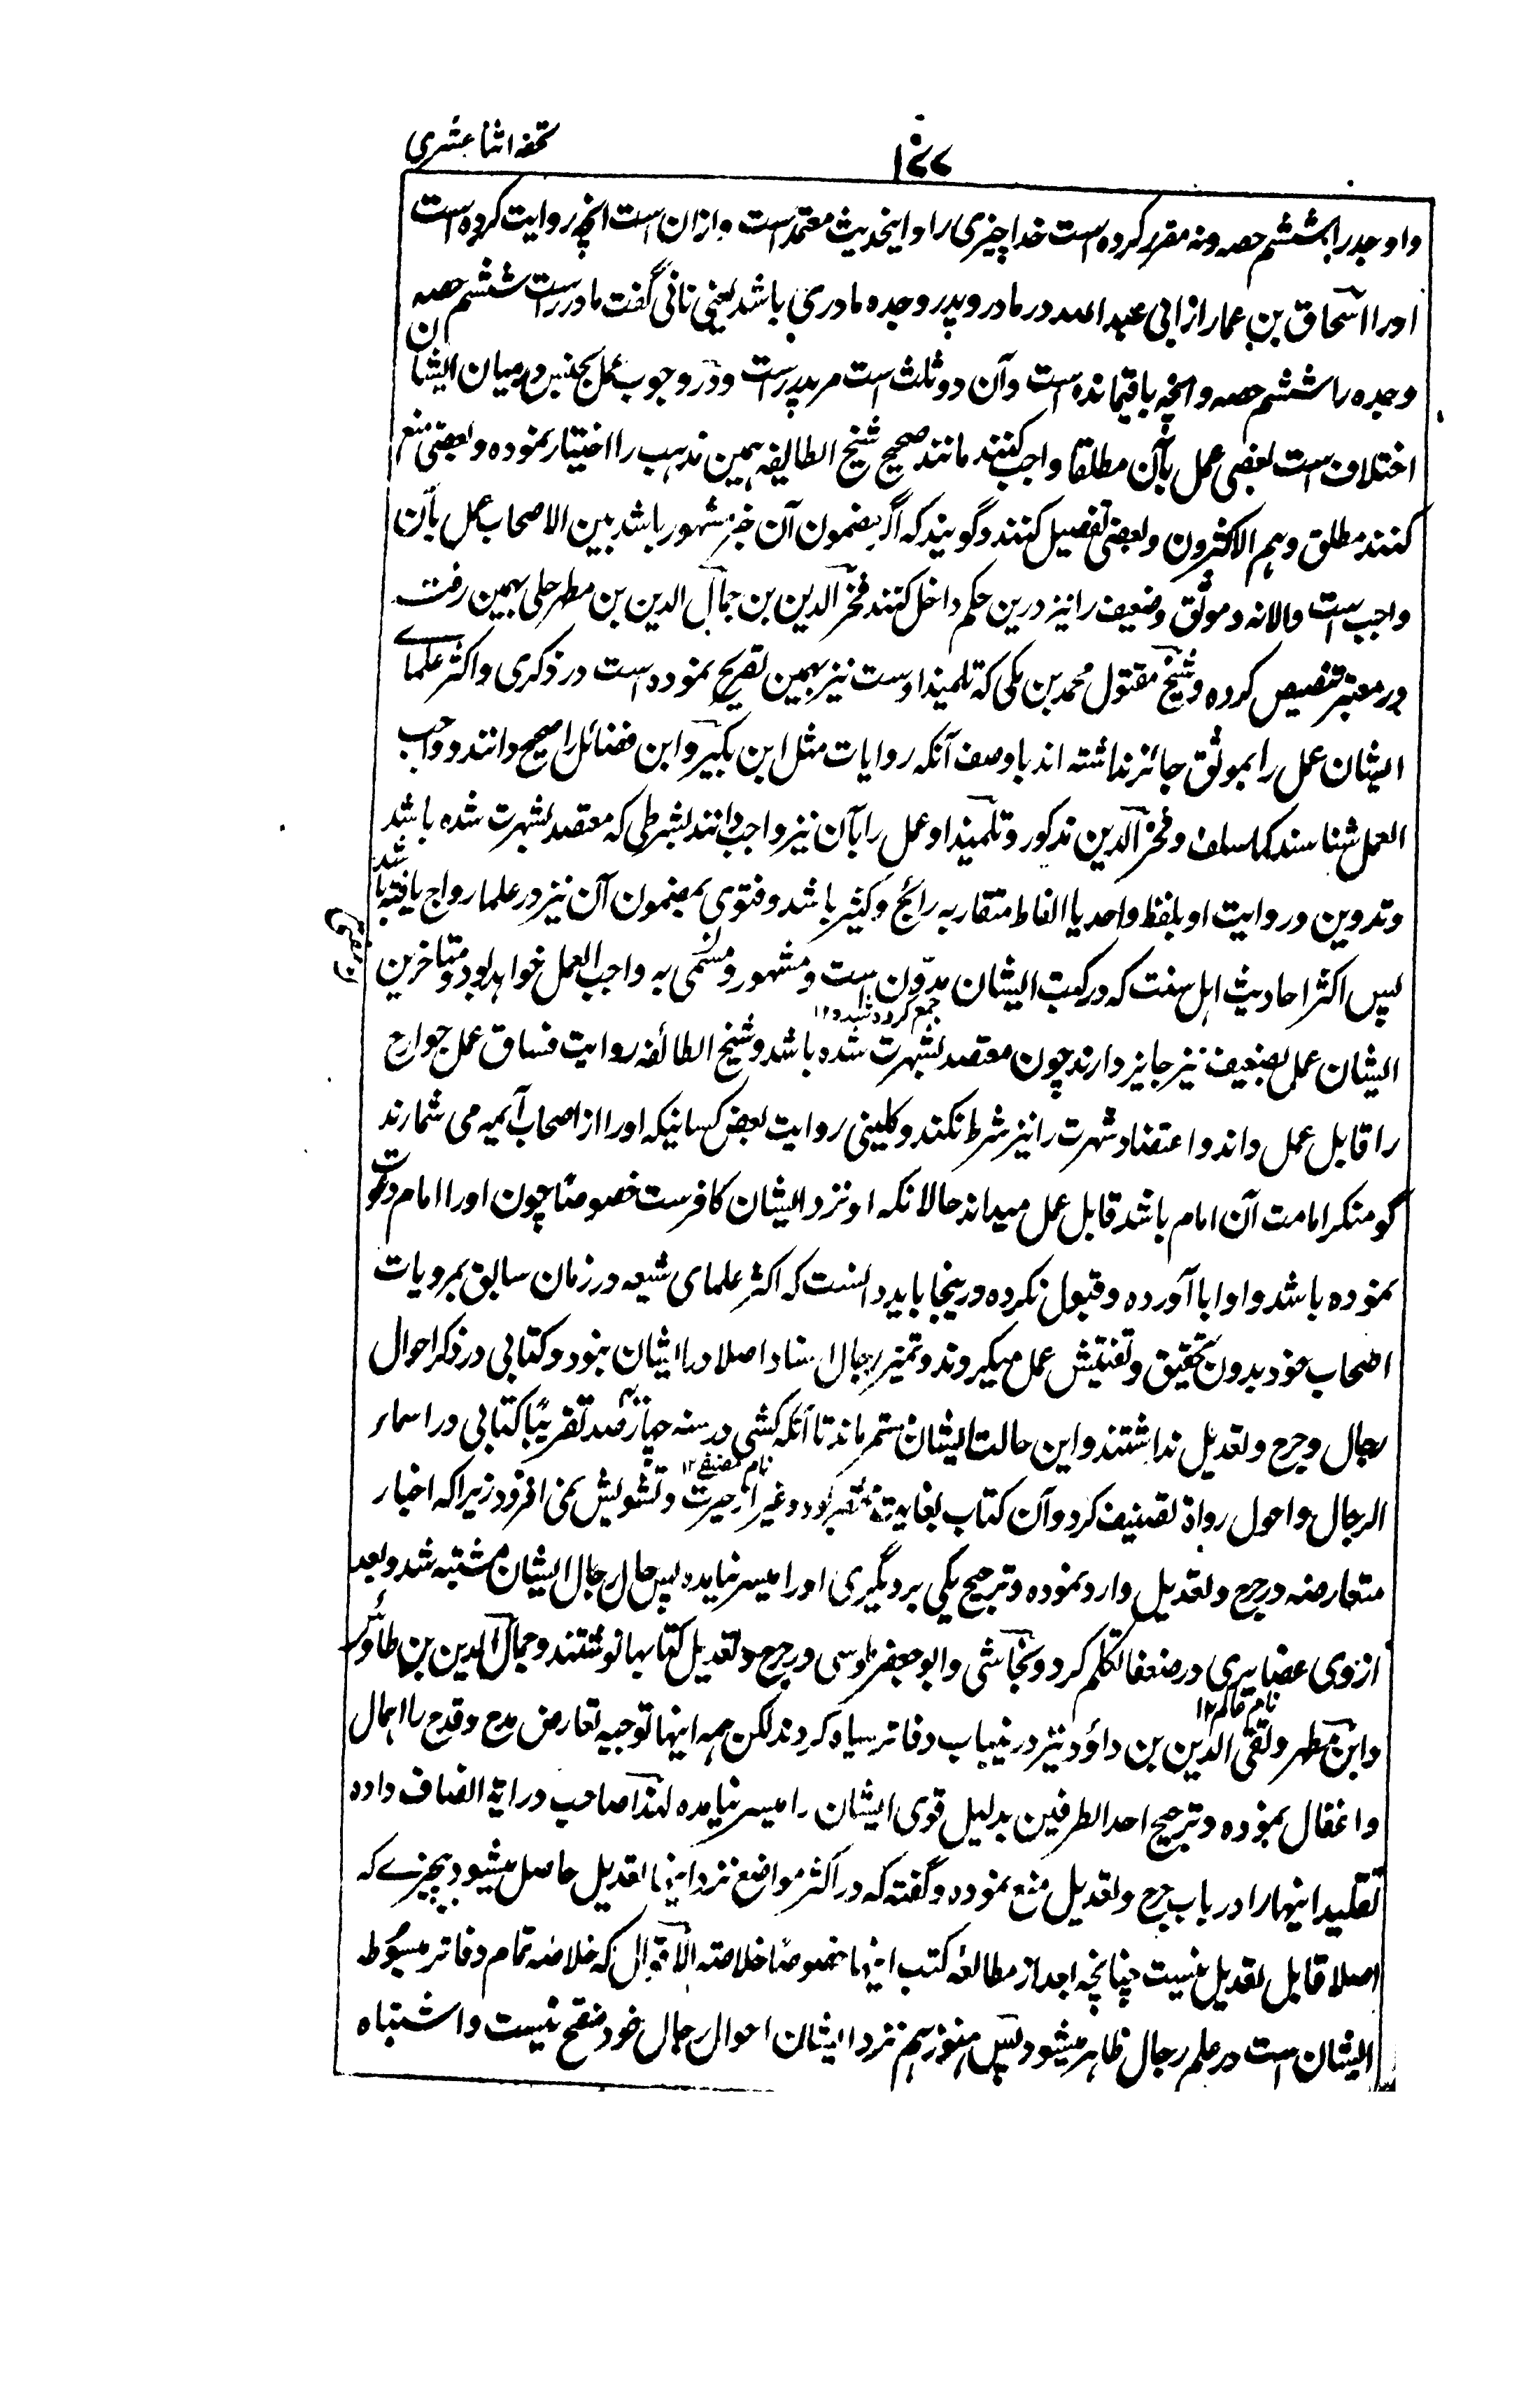 تحفه اثنا عشری
۱۷۷
واو جد را ششم حصه ونه مقرر کرده است خدا چیزی را و اینحدیث معتمد است و ازان است انچه روایت کرده است
اورا اسحاق بن عمار از ابی عبد الله در مادر و پدر و جده مادری باشد یعنی نانی گفت مادر راست ششم حصه
وجده را ششم حصه وانچه باقیمانده است وآن دو ثلث است مر پدر راست ودر وجوب عمل بخبر در میان ایشان
اختلاف است بعضی عمل بآن مطلقا واجب کنند مانند صحیح شیخ الطایفه همین مذهب را اختیار نموده و بعضی منع
کنند مطلق وهم الاکثرون وبعضی تفصیل کنند و گویند که اگر مضمون آن خبر مشهور باشد بین الاصحاب عمل بآن
واجب است والا نه و موثق وضعیف را نیز درین حکم داخل کنند فخر الدین بن جمال الدین بن مطهر حلی بهمین رفت
و در معتبر تنصیص کرده و شیخ مقتول محمد بن مکی که تلمیذ اوست نیز بهمین تصریح نموده است در ذکری و اکثر علمای
ایشان عمل را بموثق جائز نداشته اند با وصف آنکه روایات مثل ابن بکیر و ابن فضائل را صحیح دانند و واجب
العمل شناسند کما سلف و فخر الدین مذکور و تلمیذ او عمل را بآن نیز واجب دانند بشرطی که معتضد بشهرت شده باشد
وتدوین و روایت او بلفظ واحد یا الفاظ متقاربه رائج و کثیر باشد و فتوی بمضمون آن نیز در علما رواج یافته باشد
پس اکثر احادیث اهل سنت که در کتب ایشان مدوّن است و مشهور و مفتی به واجب العمل خواهد بود و متاخرین
جمع کرده شده ۱۲
ایشان عمل بضعیف نیز جایز دارند چون معتضد بشهرت شده باشد و شیخ الطائفه روایت فساق عمل جوارح
را قابل عمل داند و اعتضاد شهرت را نیز شرط نکند و کلینی روایت بعض کسانیکه اورا از اصحاب آئمه می شمارند
گو منکر امامت آن امام باشد قابل عمل میداند حالانکه او نزد ایشان کافرست خصوصًا چون اورا امام دعوت
نموده باشد و او ابا آورده و قبول نکرده و درینجا باید دانست که اکثر علمای شیعه در زمان سابق بمرویات
اصحاب خود بدون تحقیق و تفتیش عمل میکردند و تمیز رجال اسناد اصلا در ایشان نبود و کتابی در ذکر احوال
رجال و جرح و تعدیل نداشتند و این حالت ایشان مستمر ماند تا آنکه کشی در سنه چهارصد تقریبًا کتابی در اسماء
الرجال و احول رواة تصنیف کرد و آن کتاب بغایت مختصر بود و غیر از حیرت و تشویش نمی افزود زیرا که اخبار
نام مصنف ۱۲
متعارضه در جرح و تعدیل وارد نموده و ترجیح یکی بر دیگری اورا میسر نیامده پس حال رجال ایشان مشتبه شد و بعد
ازوی غضایری در ضعفا تکلم کرد و نجاشی و ابو جعفر طوسی در جرح و تعدیل کتابها نوشتند و جمال الدین بن طاؤس
وابن مطهر و تقی الدین بن داؤد نیز درینباب دفاتر سیاه کردند لکن همه اینها توجیه تعارض مدح و قدح را اهمال
نام عالم ۱۲
و اغفال نموده و ترجیح احد الطرفین بدلیل قوی ایشان را میسر نیامده لهذا صاحب درایة انصاف داده
تقلید اینها را در باب جرح و تعدیل منع نموده و گفته که در اکثر مواضع نزد اینها تعدیل حاصل میشود بچیزے که
اصلا قابل تعدیل نیست چنانچه بعد از مطالعه کتب اینها خصوصًا خلاصة الاقوال که خلاصه تمام دفاتر مبسوط
ایشان است در علم رجال ظاهر میشود پس هنوز هم نزد ایشان احوال رجال خود منقح نیست و اشتباه